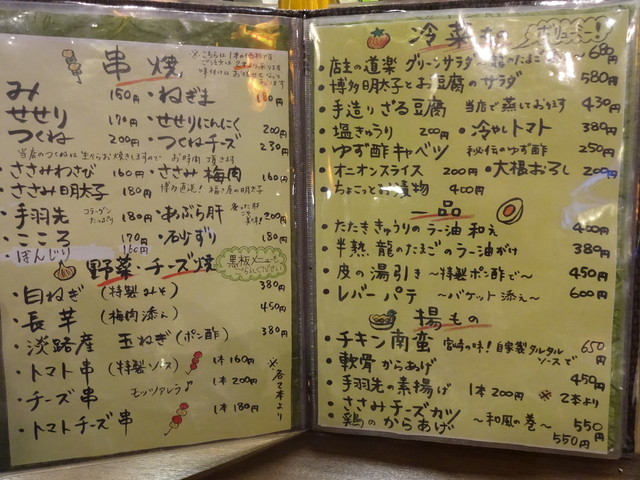 串焼
※こちらは1本の価格です
ご注文は2本より
味付けはお任せとなって
おります
み 150円
・ねぎま 180円
せせり 170円
・せせりにんにく 200円
つくね 200円
・つくねチーズ 230円
当店のつくねは生からお焼きしますので お時間頂きます
ささみわさび 160円
・ささみ梅肉 160円
ささみ明太子 180円
博多直送!福さ屋の明太子
・手羽先 コラーゲンたっぷり 180円
・あぶら肝 200円
・こころ 170円
・砂ずり 180円
・ぼんじり 160円
野菜・チーズ焼
黒板メニューも
ごらんください
・白ねぎ (特製みそ) 380円
・長芋 (梅肉添え) 450円
・淡路産 玉ねぎ (ポン酢) 380円
・トマト串 (特製ソース) 1本160円
・チーズ串 モッツァレラ♪ 1本200円
・トマトチーズ串 1本180円
※各2本より
冷菜
ボリューミー!
・店主の道楽 グリーンサラダ 680円
・博多明太子とお豆腐のサラダ 580円
・手造りざる豆腐 当店で蒸しております 430円
・塩きゅうり 200円
・冷やしトマト 380円
・ゆず酢キャベツ 秘伝のゆず酢 250円
・オニオンスライス 200円
・大根おろし 200円
・ちょこっとお漬物 400円
一品
・たたききゅうりのラー油和え 400円
・半熟 龍のたまごのラー油がけ 380円
・皮の湯引き 〜特製ポン酢で〜 450円
・レバーパテ 〜バケット添え〜 600円
揚もの
・チキン南蛮 宮崎の味!自家製タルタルソースで 650円
・軟骨からあげ 450円
・手羽先の素揚げ 1本200円 ※2本より
・ささみチーズカツ 〜和風の巻〜 550円
・鶏のからあげ 550円